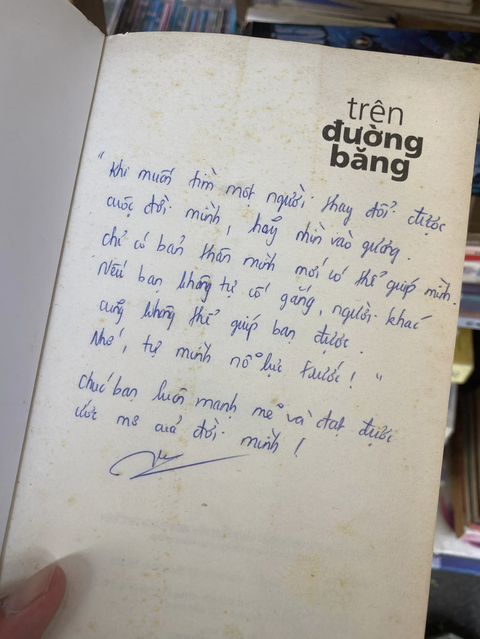 trên
đường
băng
"Khi muốn tìm một người thay đổi được
cuộc đời mình, hãy nhìn vào gương.
chỉ có bản thân mình mới có thể giúp mình.
Nếu bạn không tự cố gắng, người khác
cũng không thể giúp bạn được.
Nhớ, tự mình nỗ lực trước! "
Chúc bạn luôn mạnh mẽ và đạt được
ước mơ của đời mình!